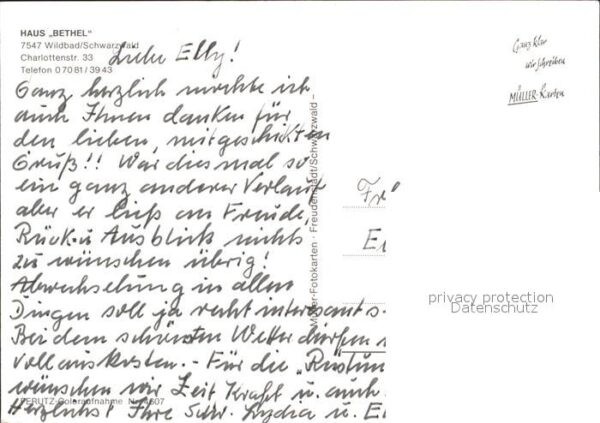 HAUS „BETHEL"
7547 Wildbad/Schwarzwald
Charlottenstr. 33
Telefon 0 70 81 / 39 43
Liebe Elly!
Ganz herzlich möchte ich
auch Ihnen danken für
den lieben, mitgeschickten
Gruß!! War diesmal so
ein ganz anderer Verlauf
aber er ließ an Freude,
Rück- u Ausblick nichts
zu wünschen übrig!
Abwechselung in allen
Dingen soll ja recht interessant s.
Bei dem schönsten Wetter dürfen
voll auskosten. - Für die „Rüstun
wünschen wir Zeit Kraft u. auch
Herzlichst Ihre Schw. Lydia u. E
PERUTZ-Coloraufnahme Nr.
Müller-Fotokarten · Freudenstadt/Schwarzwald
Ganz klar
wir schreiben
MÜLLER-Karten
Fr
E
privacy protection
Datenschutz